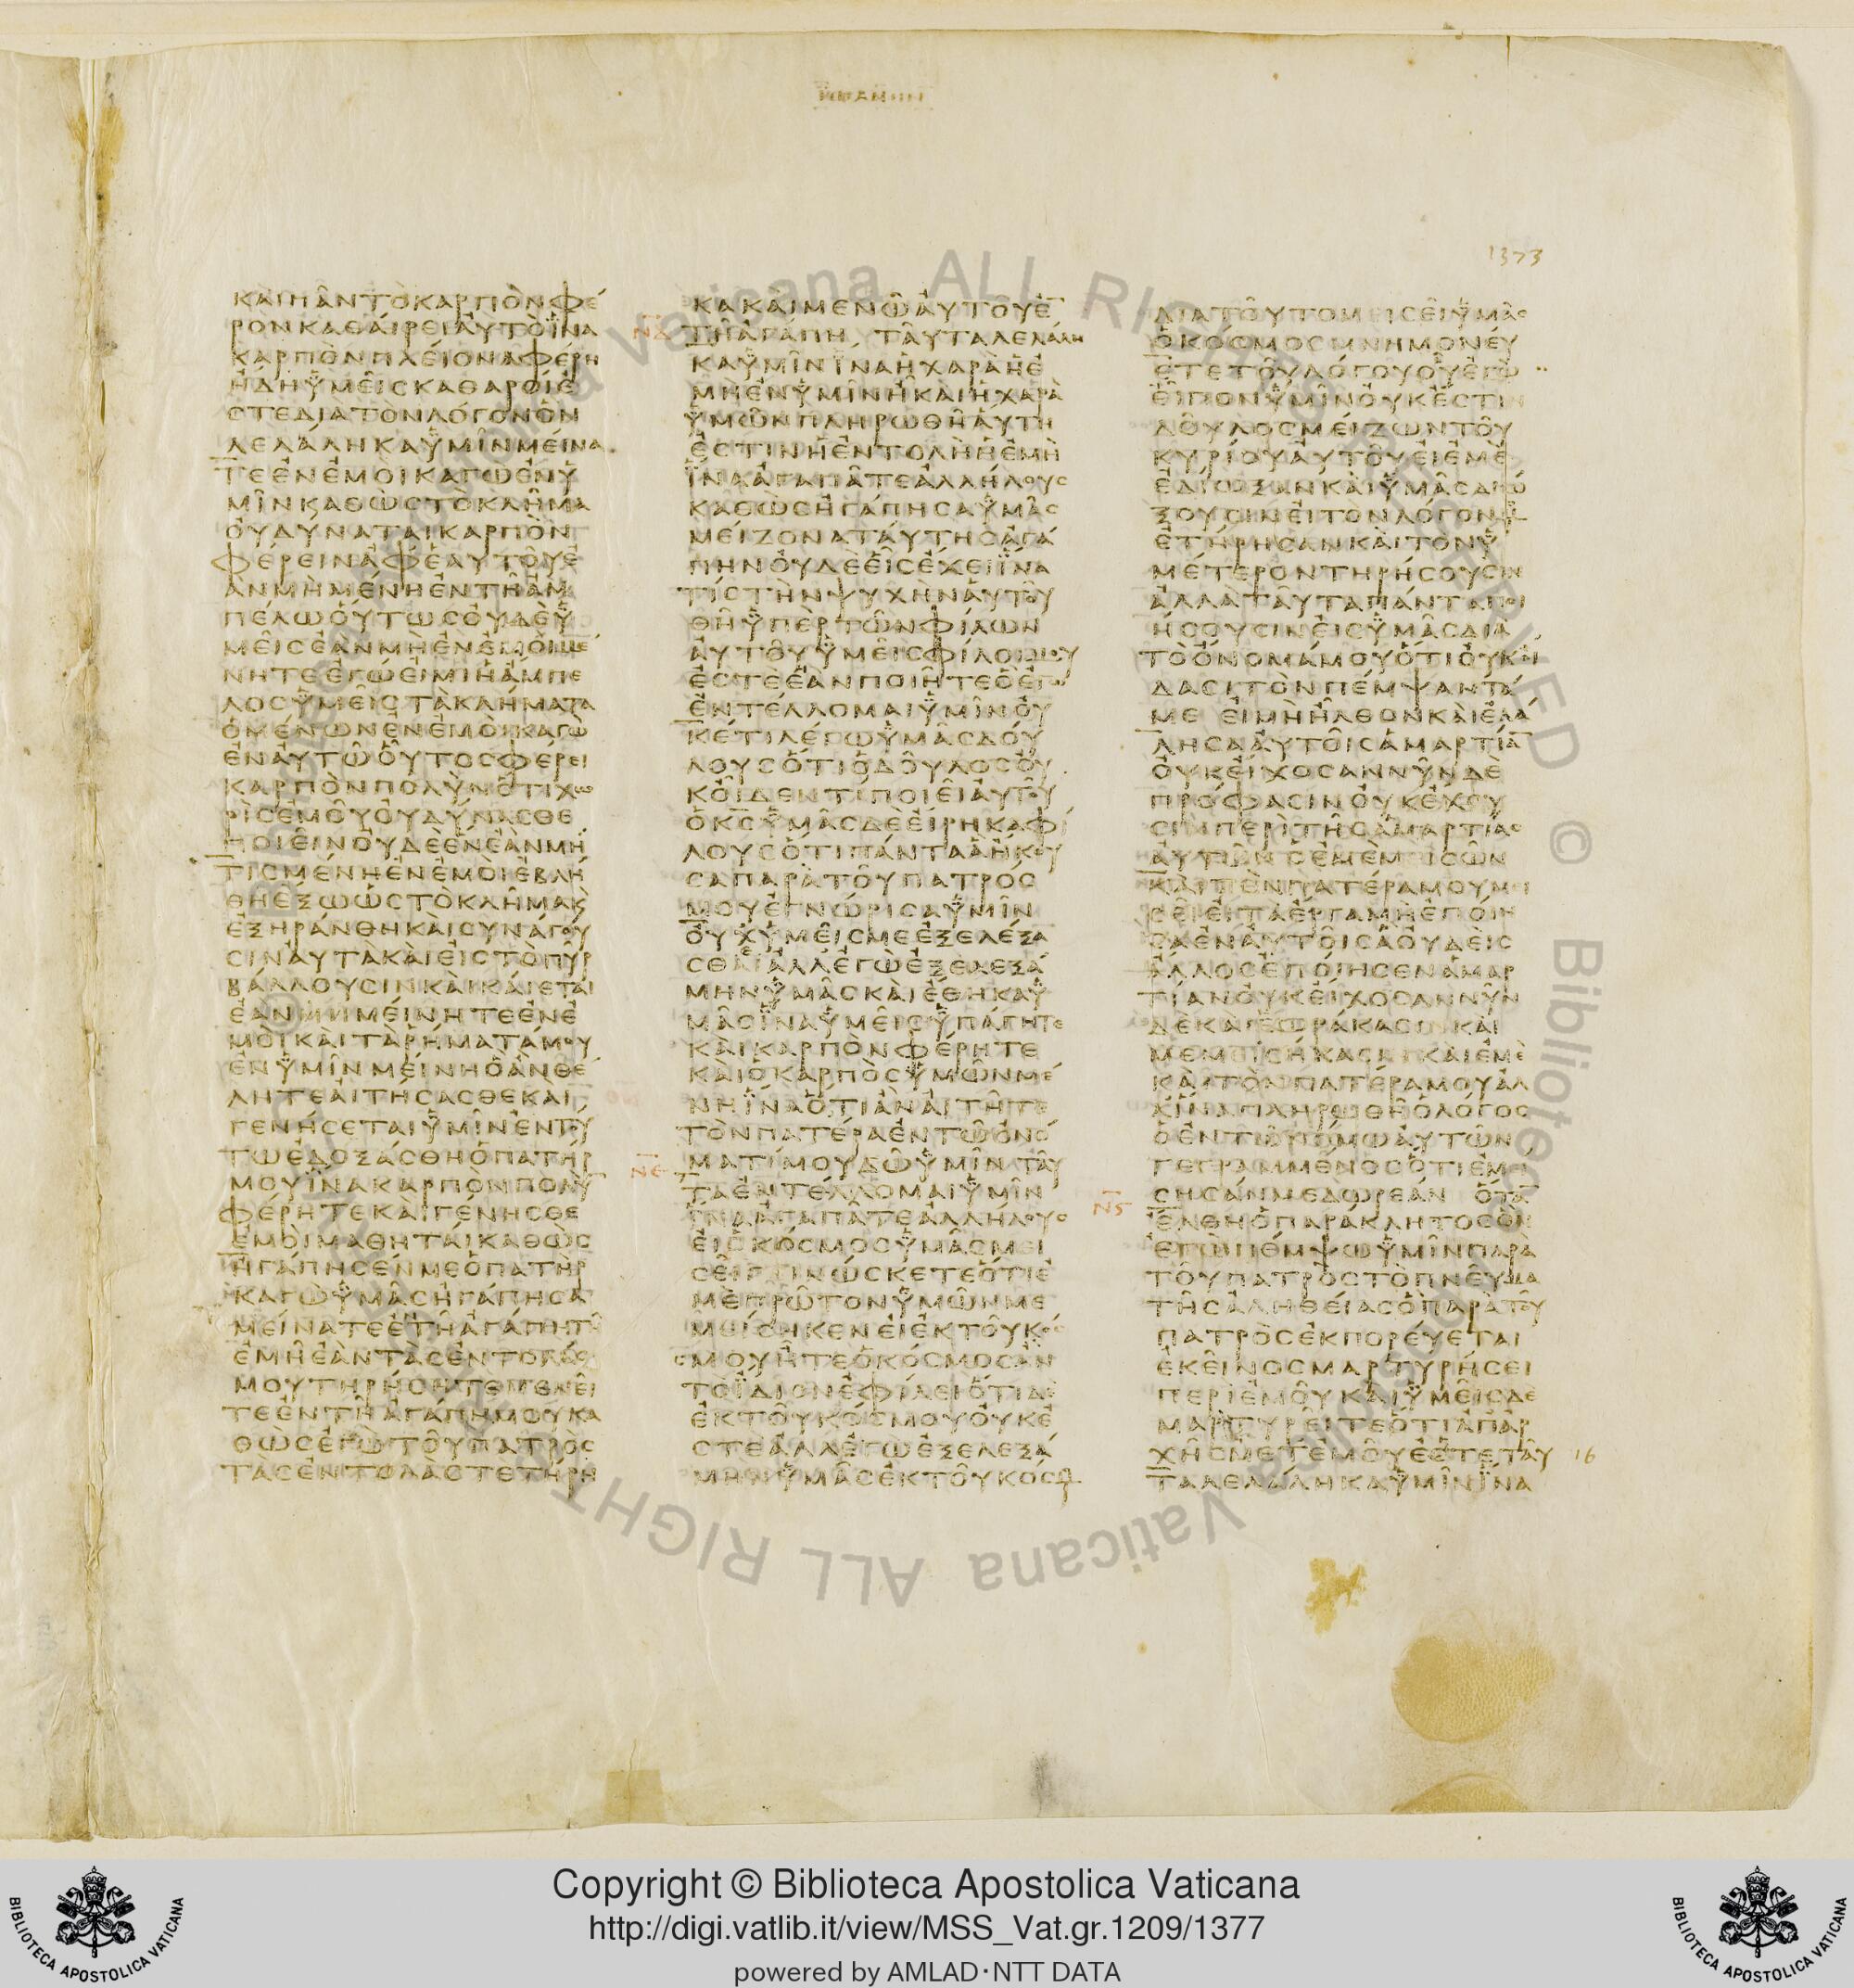 ΙΩΑΝΗΝ
1373
ΚΑΙΠΑΝΤΟΚΑΡΠΟΝΦΕ
ΡΟΝΚΑΘΑΙΡΕΙΑΥΤΟΪΝΑ
ΚΑΡΠΟΝΠΛΕΙΟΝΑΦΕΡΗ
ΗΔΗΫΜΕΙΣΚΑΘΑΡΟΙΕ
ΣΤΕΔΙΑΤΟΝΛΟΓΟΝΟΝ
ΛΕΛΑΛΗΚΑΫΜΙΝΜΕΙΝΑ
ΤΕΕΝΕΜΟΙΚΑΓΩΕΝΫ
ΜΙΝΚΑΘΩΣΤΟΚΛΗΜΑ
ΟΥΔΥΝΑΤΑΙΚΑΡΠΟΝ
ΦΕΡΕΙΝΑΦΕΑΥΤΟΥΕ
ΑΝΜΗΜΕΝΗΕΝΤΗΑΜ
ΠΕΛΩΟΥΤΩΣΟΥΔΕΫ
ΜΕΙΣΕΑΝΜΗΕΝΕΜΟΙΜΕ
ΝΗΤΕΕΓΩΕΙΜΙΗΑΜΠΕ
ΛΟΣΫΜΕΙΣΤΑΚΛΗΜΑΤΑ
ΟΜΕΝΩΝΕΝΕΜΟΙΚΑΓΩ
ΕΝΑΥΤΩΟΥΤΟΣΦΕΡΕΙ
ΚΑΡΠΟΝΠΟΛΥΝΟΤΙΧΩ
ΡΙΣΕΜΟΥΟΥΔΥΝΑΣΘΕ
ΠΟΙΕΙΝΟΥΔΕΕΝΕΑΝΜΗ
ΤΙΣΜΕΝΗΕΝΕΜΟΙΕΒΛΗ
ΘΗΕΞΩΩΣΤΟΚΛΗΜΑΚ
ΕΞΗΡΑΝΘΗΚΑΙΣΥΝΑΓΟΥ
ΣΙΝΑΥΤΑΚΑΙΕΙΣΤΟΠΥΡ
ΒΑΛΛΟΥΣΙΝΚΑΙΚΑΙΕΤΑΙ
ΕΑΝΜΜΕΙΝΗΤΕΕΝΕ
ΜΟΙΚΑΙΤΑΡΗΜΑΤΑΜΟΥ
ΕΝΫΜΙΝΜΕΙΝΗΟΑΝΘΕ
ΛΗΤΕΑΙΤΗΣΑΣΘΕΚΑΙ
ΓΕΝΗΣΕΤΑΙΫΜΙΝΕΝΤΟΥ
ΤΩΕΔΟΞΑΣΘΗΟΠΑΤΗΡ
ΜΟΥΪΝΑΚΑΡΠΟΝΠΟΛΥ
ΦΕΡΗΤΕΚΑΙΓΕΝΗΣΘΕ
ΕΜΟΙΜΑΘΗΤΑΙΚΑΘΩΣ
ΗΓΑΠΗΣΕΝΜΕΟΠΑΤΗΡ
ΚΑΓΩΫΜΑΣΗΓΑΠΗΣΑ
ΜΕΙΝΑΤΕΕΤΗΑΓΑΠΗΤΗ
ΕΜΗΕΑΝΤΑΣΕΝΤΟΛΑΣ
ΜΟΥΤΗΡΗΣΗΤΕΜΕΝΕΙ
ΤΕΕΝΤΗΑΓΑΠΗΜΟΥΚΑ
ΘΩΣΕΓΩΤΟΥΠΑΤΡΟΣ
ΤΑΣΕΝΤΟΛΑΣΤΕΤΗΡΗ
ΚΑΚΑΙΜΕΝΩΑΥΤΟΥΕ
ΝΔ ΤΗΑΓΑΠΗ ΤΑΥΤΑΛΕΛΑΛΗ
ΚΑΫΜΙΝΪΝΑΗΧΑΡΑΗΕ
ΜΗΕΝΫΜΙΝΗΚΑΙΗΧΑΡΑ
ΫΜΩΝΠΛΗΡΩΘΗΑΥΤΗ
ΕΣΤΙΝΗΕΝΤΟΛΗΗΕΜΗ
ΪΝΑΑΓΑΠΑΤΕΑΛΛΗΛΟΥΣ
ΚΑΘΩΣΗΓΑΠΗΣΑΫΜΑΣ
ΜΕΙΖΟΝΑΤΑΥΤΗΣΑΓΑ
ΠΗΝΟΥΔΕΕΙΣΕΧΕΙΪΝΑ
ΤΙΣΤΗΝΨΥΧΗΝΑΥΤΟΥ
ΘΗΫΠΕΡΤΩΝΦΙΛΩΝ
ΑΥΤΟΥΫΜΕΙΣΦΙΛΟΙΜΟΥ
ΕΣΤΕΕΑΝΠΟΙΗΤΕΟΕΓΩ
ΕΝΤΕΛΛΟΜΑΙΫΜΙΝΟΥ
ΚΕΤΙΛΕΓΩΫΜΑΣΔΟΥ
ΛΟΥΣΟΤΙΟΔΟΥΛΟΣΟΥ
ΚΟΙΔΕΝΤΙΠΟΙΕΙΑΥΤΟΥ
ΟΚΣΫΜΑΣΔΕΕΙΡΗΚΑΦΙ
ΛΟΥΣΟΤΙΠΑΝΤΑΑΗΚΟΥ
ΣΑΠΑΡΑΤΟΥΠΑΤΡΟΣ
ΜΟΥΕΓΝΩΡΙΣΑΫΜΙΝ
ΟΥΧΫΜΕΙΣΜΕΕΞΕΛΕΞΑ
ΣΘΑΙΑΛΛΕΓΩΕΞΕΛΕΞΑ
ΜΗΝΫΜΑΣΚΑΙΕΘΗΚΑΫ
ΜΑΣΪΝΑΫΜΕΙΣΫΠΑΓΗΤΕ
ΚΑΙΚΑΡΠΟΝΦΕΡΗΤΕ
ΚΑΙΟΚΑΡΠΟΣΫΜΩΝΜΕ
ΝΗΪΝΑΟΤΙΑΝΑΙΤΗΤΕ
ΤΟΝΠΑΤΕΡΑΕΝΤΩΟΝΟ
ΜΑΤΙΜΟΥΔΩΫΜΙΝ ΤΑΥ
ΝΕ ΤΑΕΝΤΕΛΛΟΜΑΙΫΜΙΝ
ΪΝΑΑΓΑΠΑΤΕΑΛΛΗΛΟΥΣ
ΕΙΟΚΟΣΜΟΣΫΜΑΣΜΕΙ
ΣΕΙΓΕΙΝΩΣΚΕΤΕΟΤΙΕ
ΜΕΠΡΩΤΟΝΫΜΩΝΜΕ
ΜΕΙΣΗΚΕΝΕΙΕΚΤΟΥΚΟ
ΣΜΟΥΗΤΕΟΚΟΣΜΟΣΑΝ
ΤΟΪΔΙΟΝΕΦΙΛΕΙΟΤΙΔΕ
ΕΚΤΟΥΚΟΣΜΟΥΟΥΚΕ
ΣΤΕΑΛΛΕΓΩΕΞΕΛΕΞΑ
ΜΗΝΫΜΑΣΕΚΤΟΥΚΟΣΜ
ΔΙΑΤΟΥΤΟΜΕΙΣΕΙΫΜΑΣ
ΟΚΟΣΜΟΣΜΝΗΜΟΝΕΥ
ΕΤΕΤΟΥΛΟΓΟΥΟΥΕΓΩ
ΕΙΠΟΝΫΜΙΝΟΥΚΕΣΤΙΝ
ΔΟΥΛΟΣΜΕΙΖΩΝΤΟΥ
ΚΥΡΙΟΥΑΥΤΟΥΕΙΕΜΕ
ΕΔΙΩΞΑΝΚΑΙΫΜΑΣΔΙΩ
ΞΟΥΣΙΝΕΙΤΟΝΛΟΓΟΝΜ
ΕΤΗΡΗΣΑΝΚΑΙΤΟΝΫ
ΜΕΤΕΡΟΝΤΗΡΗΣΟΥΣΙΝ
ΑΛΛΑΤΑΥΤΑΠΑΝΤΑΠΟΙ
ΗΣΟΥΣΙΝΕΙΣΫΜΑΣΔΙΑ
ΤΟΟΝΟΜΑΜΟΥΟΤΙΟΥΚΟΙ
ΔΑΣΙΤΟΝΠΕΜΨΑΝΤΑ
ΜΕ ΕΙΜΗΗΛΘΟΝΚΑΙΕΛΑ
ΛΗΣΑΑΥΤΟΙΣΑΜΑΡΤΙΑ
ΟΥΚΕΙΧΟΣΑΝΝΥΝΔΕ
ΠΡΟΦΑΣΙΝΟΥΚΕΧΟΥ
ΣΙΝΠΕΡΙΤΗΣΑΜΑΡΤΙΑΣ
ΑΥΤΩΝΟΕΜΕΜΙΣΩΝ
ΚΑΙΤΟΝΠΑΤΕΡΑΜΟΥΜΙ
ΣΕΙΕΙΤΑΕΡΓΑΜΗΕΠΟΙΗ
ΣΑΕΝΑΥΤΟΙΣΑΟΥΔΕΙΣ
ΑΛΛΟΣΕΠΟΙΗΣΕΝΑΜΑΡ
ΤΙΑΝΟΥΚΕΙΧΟΣΑΝΝΥΝ
ΔΕΚΑΙΕΩΡΑΚΑΣΙΝΚΑΙ
ΜΕΜΕΙΣΗΚΑΣΙΝΚΑΙΕΜΕ
ΚΑΙΤΟΝΠΑΤΕΡΑΜΟΥΑΛ
ΛΪΝΑΠΛΗΡΩΘΗΟΛΟΓΟΣ
ΟΕΝΤΩΝΟΜΩΑΥΤΩΝ
ΓΕΓΡΑΜΜΕΝΟΣΟΤΙΕΜΙ
ΣΗΣΑΝΜΕΔΩΡΕΑΝ ΟΤΑ
ΝϚ ΕΛΘΗΟΠΑΡΑΚΛΗΤΟΣΟΝ
ΕΓΩΠΕΜΨΩΫΜΙΝΠΑΡΑ
ΤΟΥΠΑΤΡΟΣΤΟΠΝΕΥΜΑ
ΤΗΣΑΛΗΘΕΙΑΣΟΠΑΡΑΤΟΥ
ΠΑΤΡΟΣΕΚΠΟΡΕΥΕΤΑΙ
ΕΚΕΙΝΟΣΜΑΡΤΥΡΗΣΕΙ
ΠΕΡΙΕΜΟΥΚΑΙΫΜΕΙΣΔΕ
ΜΑΡΤΥΡΕΙΤΕΟΤΙΑΠΑΡ
ΧΗΣΜΕΤΕΜΟΥΕΣΤΕΤΑΥ 16
ΤΑΛΕΛΑΛΗΚΑΫΜΙΝΪΝΑ
Copyright © Biblioteca Apostolica Vaticana
http://digi.vatlib.it/view/MSS_Vat.gr.1209/1377
powered by AMLAD·NTT DATA
BIBLIOTECA APOSTOLICA VATICANA
BIBLIOTECA APOSTOLICA VATICANA